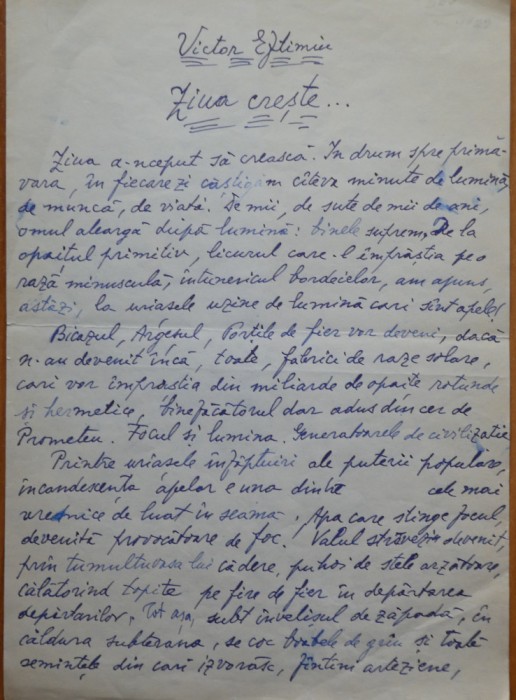 Victor Eftimiu
Ziua crește...
Ziua a-nceput să crească. In drum spre primă-
vara, în fiecare zi câștigăm câteva minute de lumină,
de muncă, de viață. De mii, de sute de mii de ani,
omul aleargă după lumină: binele suprem. De la
opaițul primitiv, licurul care-l împrăștia pe o
rază minusculă, întunericul bordeielor, am ajuns,
astăzi, la uriașele uzine de lumină cari sînt apele!
Bicazul, Argeșul, Porțile de fier vor deveni, dacă
n-au devenit încă, toate, fabrici de raze solare,
cari vor împrăștia din miliarde de opaițe rotunde
și hermetice, binefăcătorul dar adus din cer de
Prometeu. Focul și lumina. Generatoarele de civilizație
Printre uriașele înfăptuiri ale puterii populare,
incandescența apelor e una dintre cele mai
vrednice de luat în seamă. Apa care stinge focul,
devenită provocătoare de foc. Valul străveziu devenit,
prin tumultuoasa lui cădere, puhoi de stele arzătoare,
călătorind topite pe fire de fier în depărtarea
depărtărilor. Tot așa, subt învelișul de zăpadă, în
căldura subterana, se coc boabele de grîu și toate
semințele din cari izvorăsc, fîntîni arteziene,